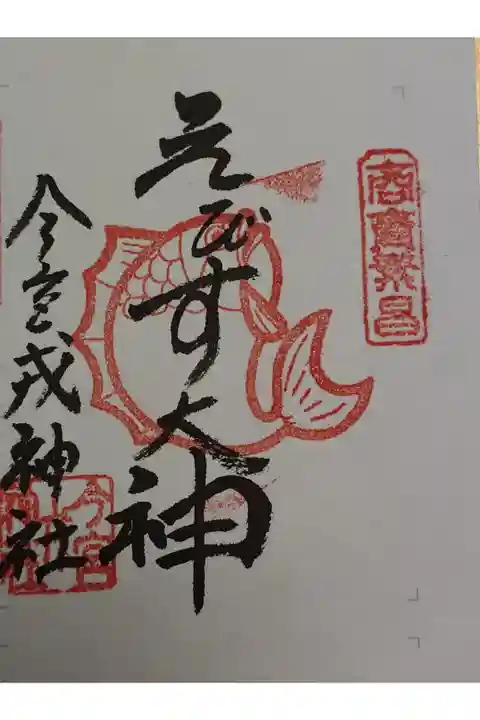 商売繁昌
えびす大神
今宮戎神社